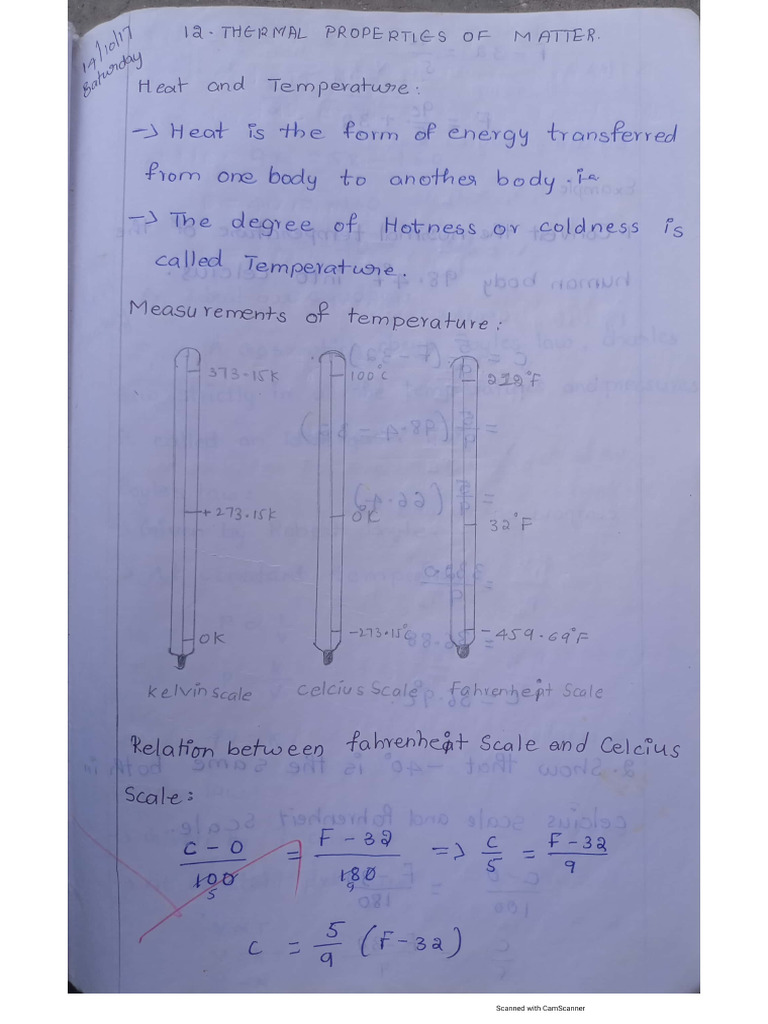 14/10/17
Saturday
12. THERMAL PROPERTIES OF MATTER.
Heat and Temperature:
-> Heat is the form of energy transferred
from one body to another body.
-> The degree of Hotness or coldness is
called Temperature.
Measurements of temperature:
373.15K 100°C 212°F
+273.15K 0°K 32°F
0K -273.15°C -459.69°F
Kelvin Scale Celcius Scale Fahrenheit Scale
Relation between fahrenheit Scale and Celcius
Scale:
C-0/100 = F-32/180 => C/5 = F-32/9
5 9
C = 5/9 (F-32)
Scanned with CamScanner